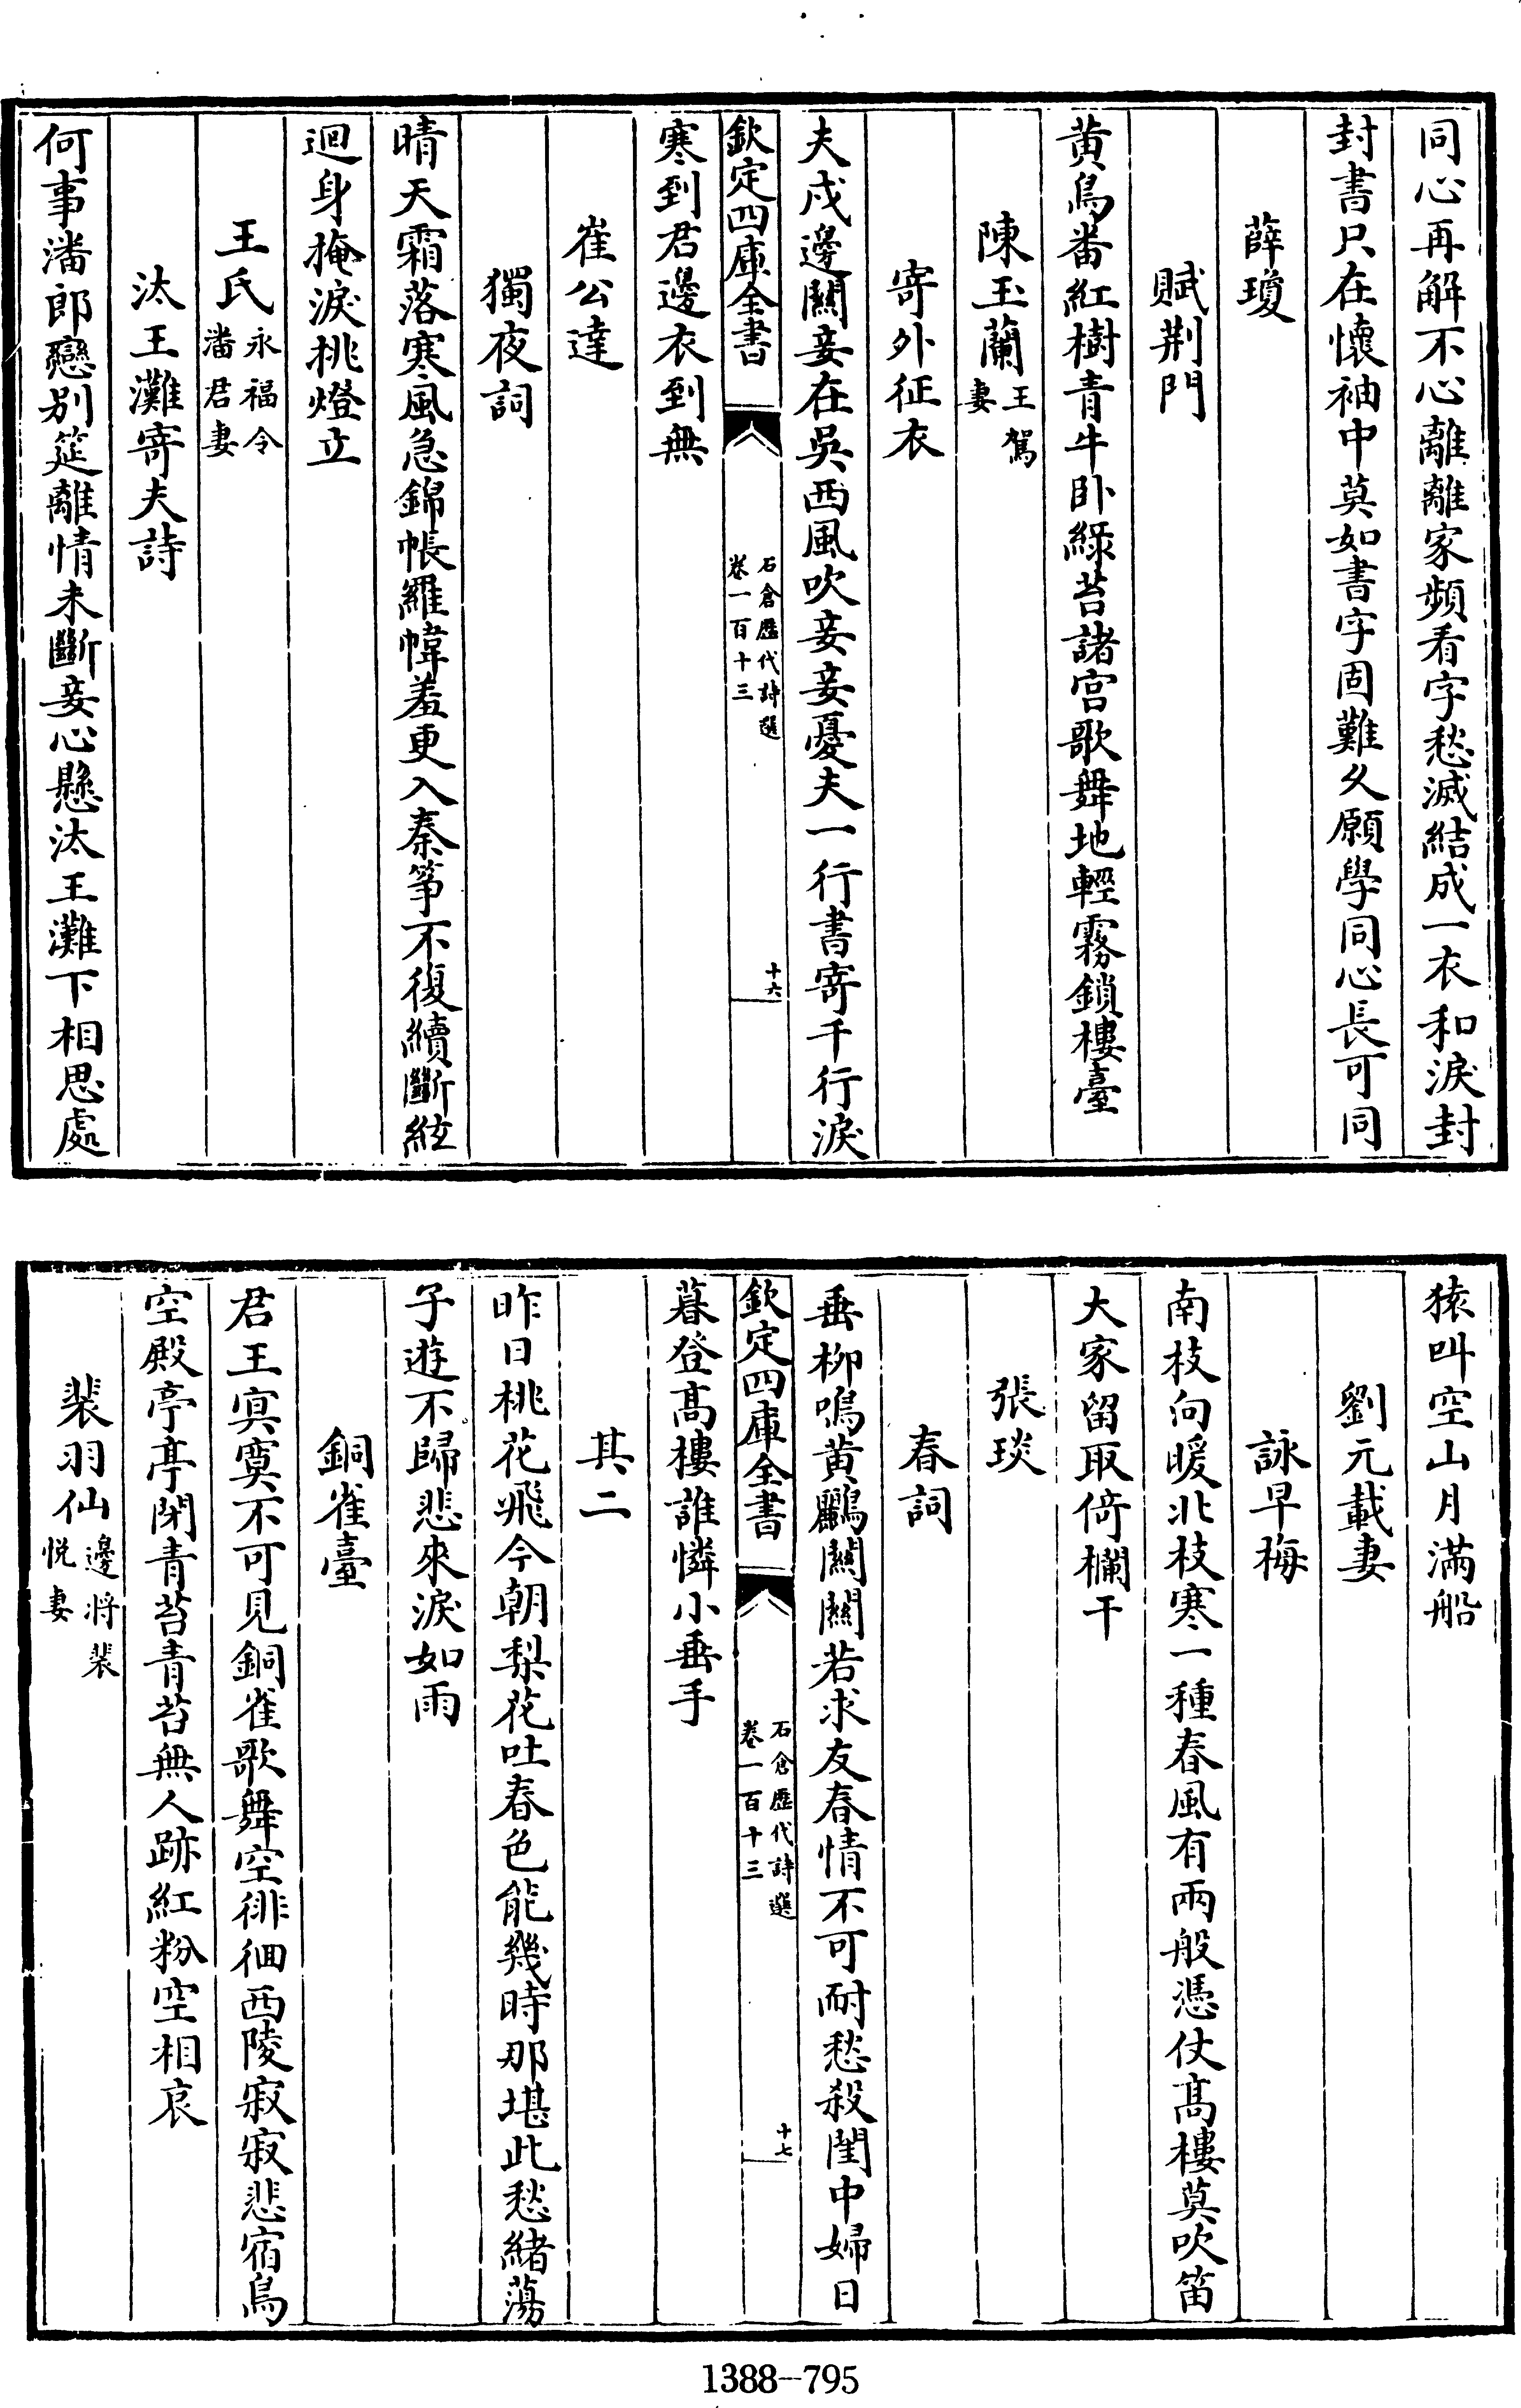 同心再解不心離離家頻看字愁滅結成一衣和淚封
封書只在懷袖中莫如書字固難久願學同心長可同
薛瓊
賦荆門
黄鳥畨紅樹青牛卧緑苔諸宫歌舞地輕霧鎖樓臺
陳玉蘭王駕
妻
寄外征衣
夫戍邊闗妾在吳西風吹妾妾憂夫一行書寄千行淚
欽定四庫全書
石倉歷代詩選
卷一百十三
十六
寒到君邊衣到無
崔公達
獨夜詞
晴天霜落寒風急錦帳羅幃羞更入秦筝不復續斷絃
迴身掩淚挑燈立
王氏永福令
潘君妻
汰王灘寄夫詩
何事潘郎戀别筵離情未斷妾心懸汰王灘下相思處
猿叫空山月滿船
劉元載妻
詠早梅
南枝向暖北枝寒一種春風有兩般憑仗髙樓莫吹笛
大家留取倚欄干
張琰
春詞
垂柳鳴黄鸝闗闗若求友春情不可耐愁殺閨中婦日
欽定四庫全書
石倉歷代詩選
卷一百十三
十七
暮登髙樓誰憐小垂手
其二
昨日桃花飛今朝梨花吐春色能幾時那堪此愁緒蕩
子遊不歸悲來淚如雨
銅雀臺
君王㝠寞不可見銅雀歌舞空徘徊西陵寂寂悲宿鳥
空殿亭亭閉青苔青苔無人跡紅粉空相哀
裴羽仙邊将裴
悦妻
1388—795